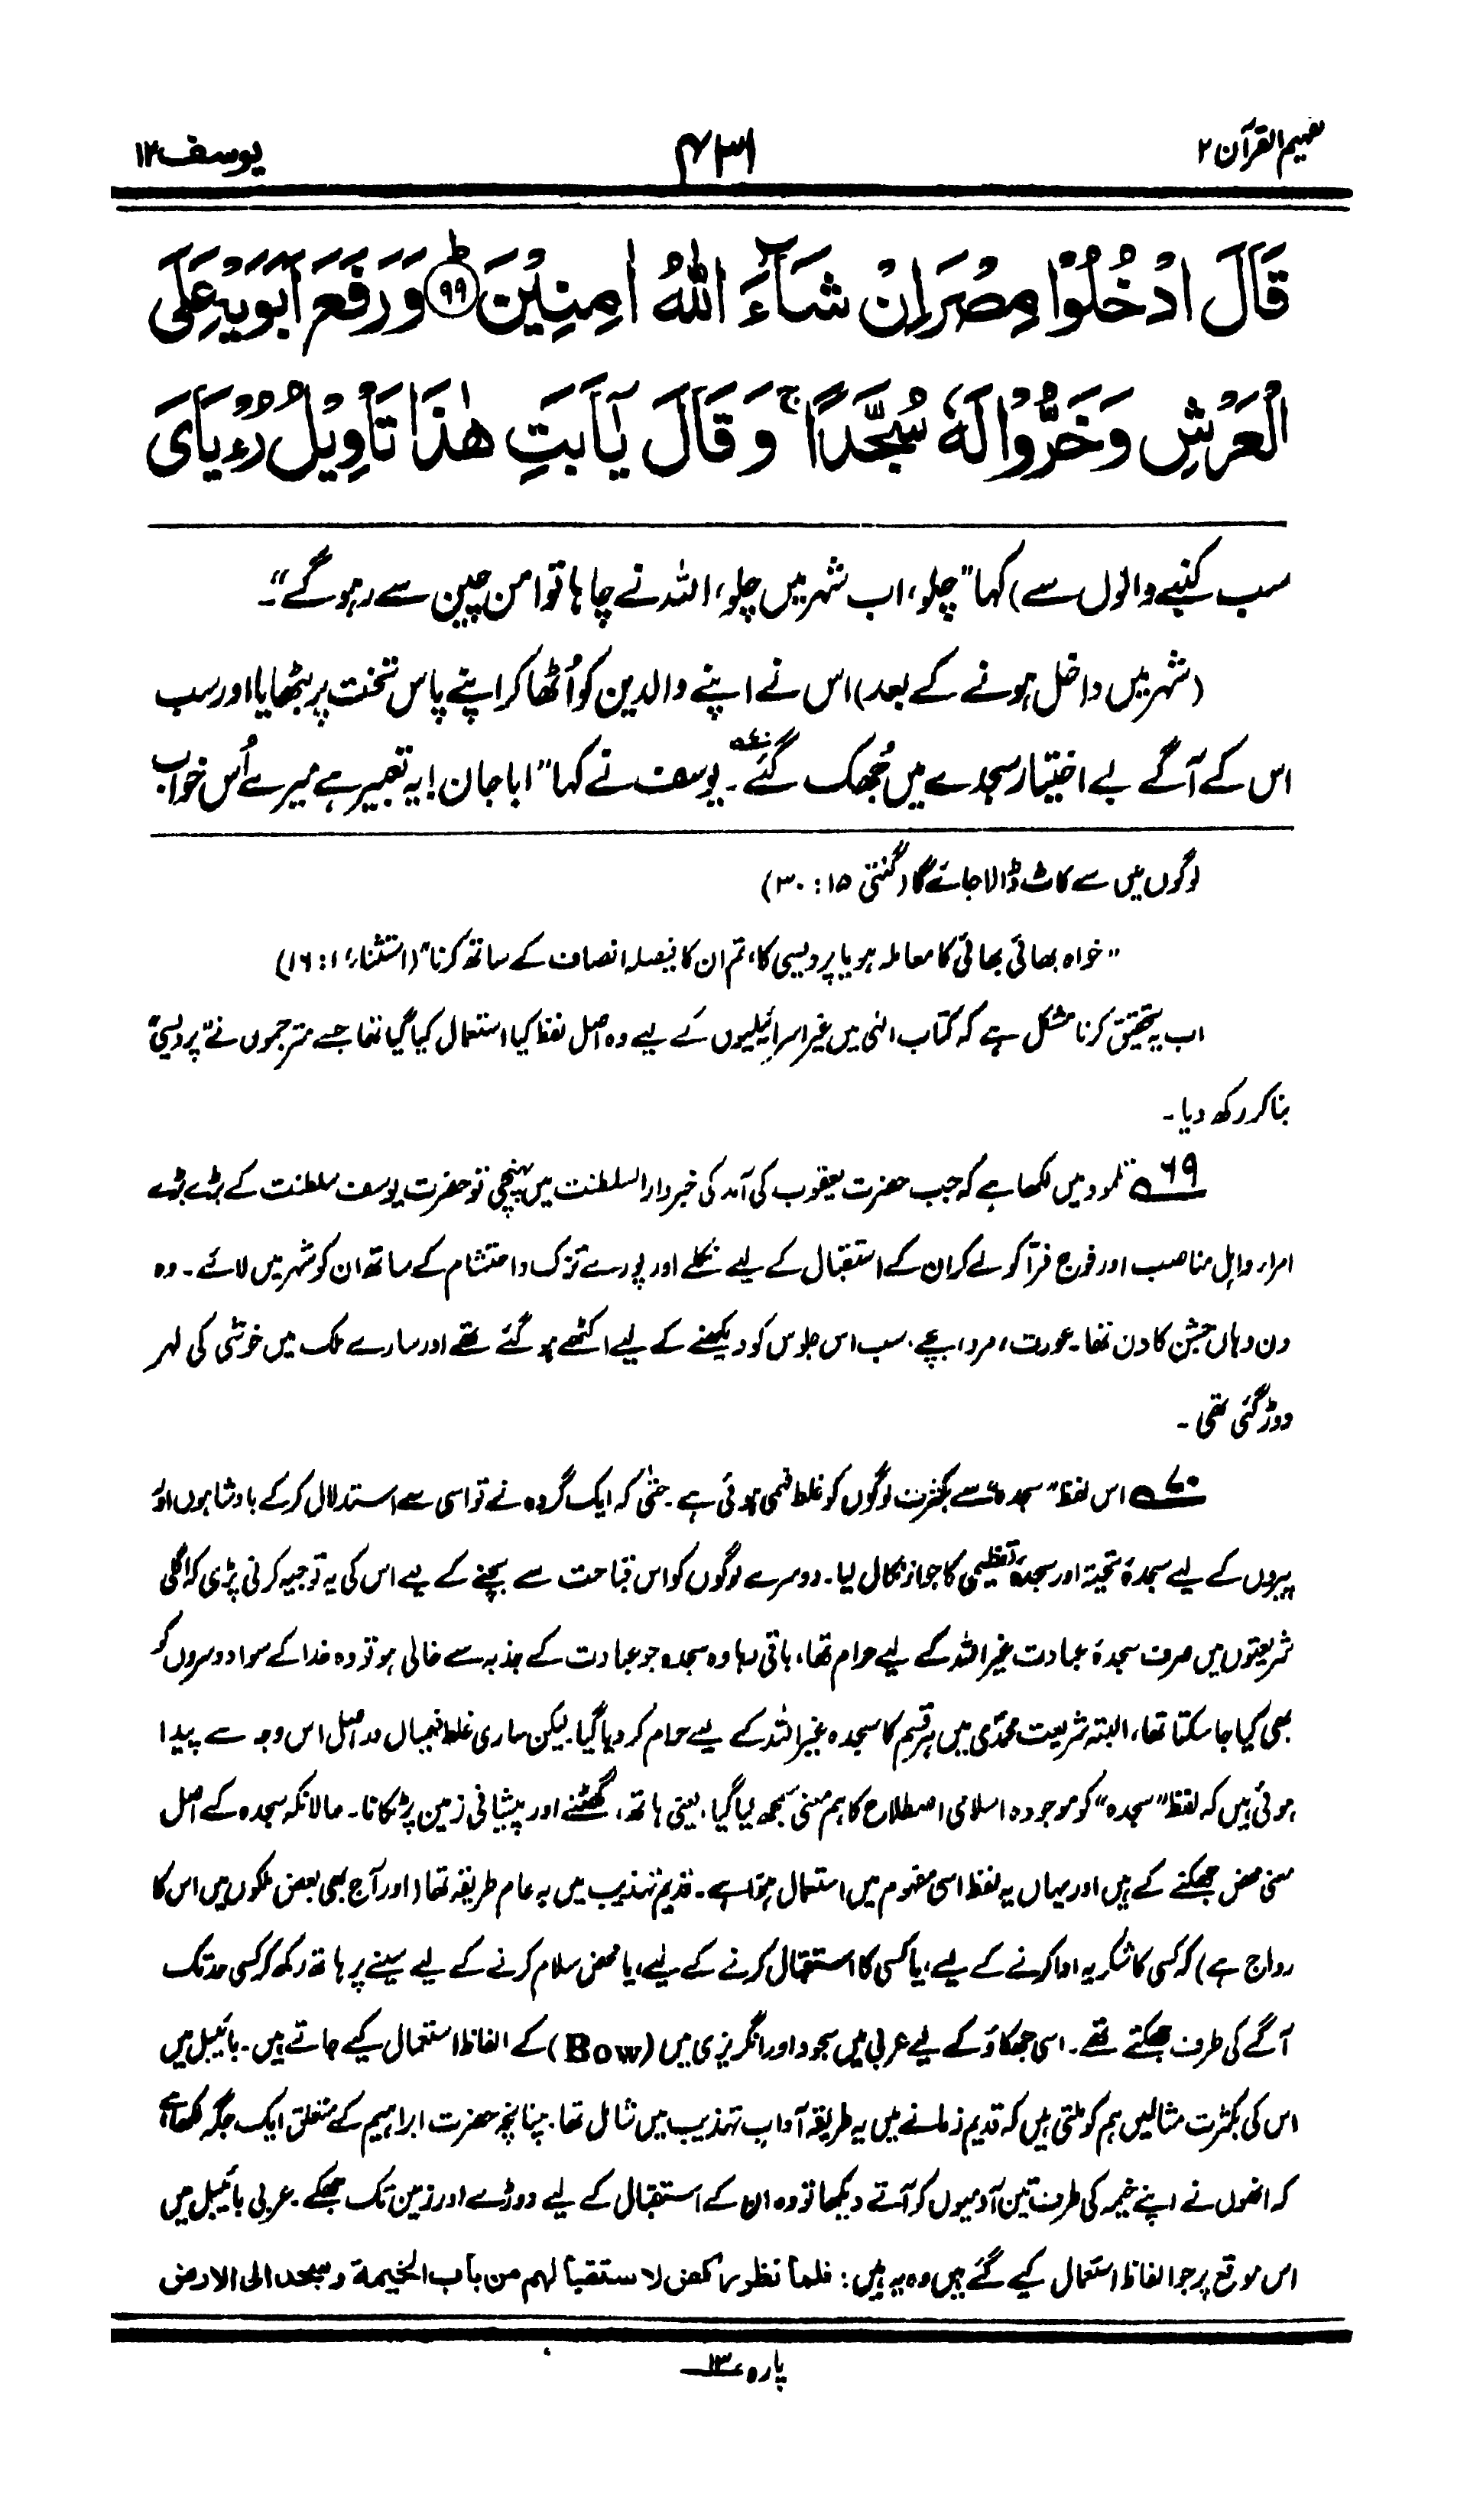 تفہیم القرآن ۲
۴۳۱
یوسف ۱۲
قَالَ ادْخُلُوْا مِصْرَ اِنْ شَآءَ اللّٰهُ اٰمِنِيْنَ ﴿۹۹﴾ وَرَفَعَ اَبَوَيْهِ عَلَى
الْعَرْشِ وَخَرُّوْا لَهٗ سُجَّدًا ۚ وَقَالَ يٰٓاَبَتِ هٰذَا تَاْوِيْلُ رُءْيَايَ
سب کنبے والوں سے) کہا ”چلو، اب شہر میں چلو، اللہ نے چاہا تو امن چین سے رہو گے“۔
(شہر میں داخل ہونے کے بعد) اس نے اپنے والدین کو اُٹھا کر اپنے پاس تخت پر بٹھایا اور سب
اس کے آگے بے اختیار سجدے میں جُھک گئے۔۷۰ یوسف نے کہا ”ابا جان! یہ تعبیر ہے میرے اُس خواب
لوگوں میں سے کاٹ ڈالا جائے گا (گنتی ۱۵: ۳۰)
”خواہ بھائی بھائی کا معاملہ ہو یا پردیسی کا، تم ان کا فیصلہ انصاف کے ساتھ کرنا“ (استثناء ۱: ۱۶)
اب یہ تحقیق کرنا مشکل ہے کہ کتاب الٰہی میں غیر اسرائیلیوں کے لیے وہ اصل لفظ کیا استعمال کیا گیا تھا جسے مترجموں نے ”پردیسی“
بنا کر رکھ دیا۔
۶۹ تلمود میں لکھا ہے کہ جب حضرت یعقوب کی آمد کی خبر دار السلطنت میں پہنچی تو حضرت یوسف سلطنت کے بڑے بڑے
امراء و اہل مناصب اور فوج فرّا کو لے کر ان کے استقبال کے لیے نکلے اور پورے تزک و احتشام کے ساتھ ان کو شہر میں لائے۔ وہ
دن وہاں جشن کا دن تھا۔ عورت، مرد، بچے، سب اس جلوس کو دیکھنے کے لیے اکٹھے ہو گئے تھے اور سارے ملک میں خوشی کی لہر
دوڑ گئی تھی۔
۷۰ اس لفظ ”سجدہ“ سے بکثرت لوگوں کو غلط فہمی ہوئی ہے۔ حتٰی کہ ایک گروہ نے تو اسی سے استدلال کر کے بادشاہوں اور
پیروں کے لیے سجدۂ تحیّۃ اور سجدۂ تعظیمی کا جواز نکال لیا۔ دوسرے لوگوں کو اس قباحت سے بچنے کے لیے اس کی یہ توجیہ کرنی پڑی کہ اگلی
شریعتوں میں صرف سجدۂ عبادت غیر اللہ کے لیے حرام تھا، باقی رہا وہ سجدہ جو عبادت کے جذبہ سے خالی ہو تو وہ خدا کے سوا دوسروں کو
بھی کیا جا سکتا تھا، البتہ شریعت محمدّی میں ہر قسم کا سجدہ غیر اللہ کے لیے حرام کر دیا گیا۔ لیکن ساری غلط فہمیاں دراصل اس وجہ سے پیدا
ہوئی ہیں کہ لفظ ”سجدہ“ کو موجودہ اسلامی اصطلاح کا ہم معنی سمجھ لیا گیا، یعنی ہاتھ، گھٹنے اور پیشانی زمین پر ٹکانا۔ حالانکہ سجدہ کے اصل
معنی محض جھکنے کے ہیں اور یہاں یہ لفظ اسی مفہوم میں استعمال ہوا ہے۔ قدیم تہذیب میں یہ عام طریقہ تھا (اور آج بھی بعض ملکوں میں اس کا
رواج ہے) کہ کسی کا شکریہ ادا کرنے کے لیے، یا کسی کا استقبال کرنے کے لیے، یا محض سلام کرنے کے لیے سینے پر ہاتھ رکھ کر کسی حد تک
آگے کی طرف جھکتے تھے۔ اسی جھکاؤ کے لیے عربی میں سجود اور انگریزی میں (Bow) کے الفاظ استعمال کیے جاتے ہیں۔ بائیبل میں
اس کی بکثرت مثالیں ہم کو ملتی ہیں کہ قدیم زمانے میں یہ طریقہ آداب تہذیب میں شامل تھا۔ چنانچہ حضرت ابراہیم کے متعلق ایک جگہ لکھا ہے
کہ انھوں نے اپنے خیمہ کی طرف تین آدمیوں کو آتے دیکھا تو وہ ان کے استقبال کے لیے دوڑے اور زمین تک جھکے۔ عربی بائیبل میں
اس موقع پر جو الفاظ استعمال کیے گئے ہیں وہ یہ ہیں: فلما نظر رکض لاستقبالهم من باب الخیمة وسجد الی الارض
پارہ ۱۳